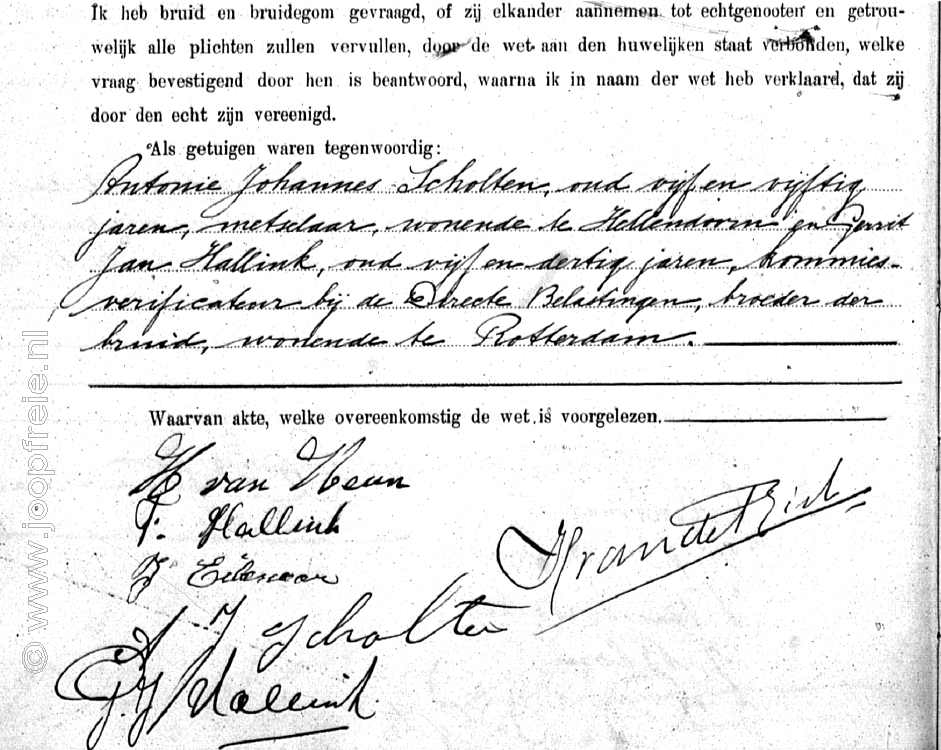 Ik heb bruid en bruidegom gevraagd, of zij elkander aannemen tot echtgenooten en getrou-
welijk alle plichten zullen vervullen, door de wet aan den huwelijken staat verbonden, welke
vraag bevestigend door hen is beantwoord, waarna ik in naam der wet heb verklaard, dat zij
door den echt zijn vereenigd.
Als getuigen waren tegenwoordig:
Antonie Johannes Scholten, oud vijf en vijftig
jaren, metselaar, wonende te Hellendoorn en Gerrit
Jan Hallink, oud vijf en dertig jaren, kommies-
verificateur bij de Directe Belastingen, broeder der
bruid, wonende te Rotterdam.
Waarvan akte, welke overeenkomstig de wet is voorgelezen.
H van
Hallink
J
A J Scholten
G.J Hallink
© www.joopfreie.nl